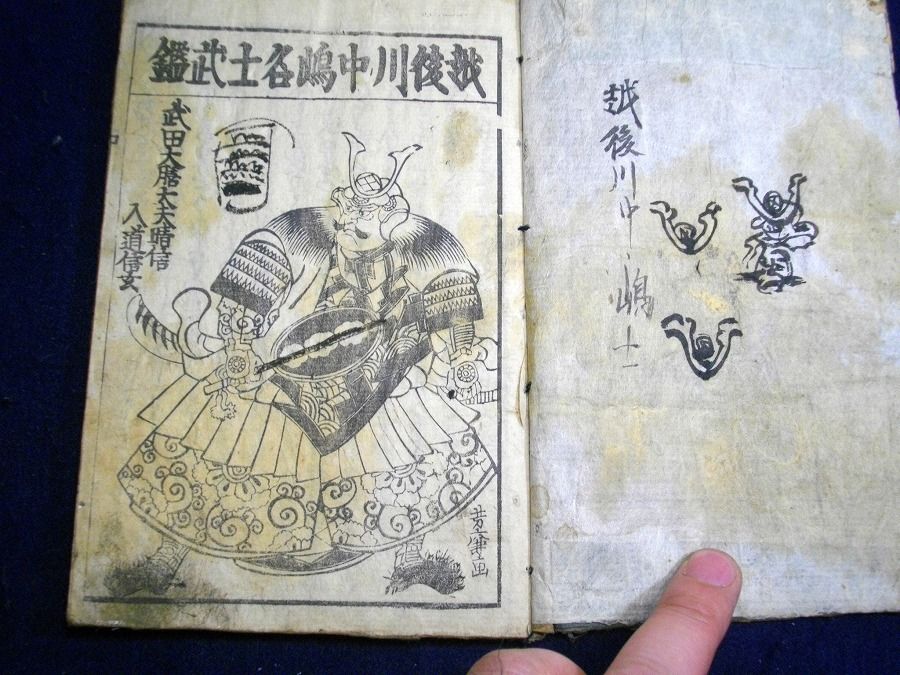 越後川中嶋士
越後川中嶋名士武鑑
武田大膳太夫晴信
入道信玄